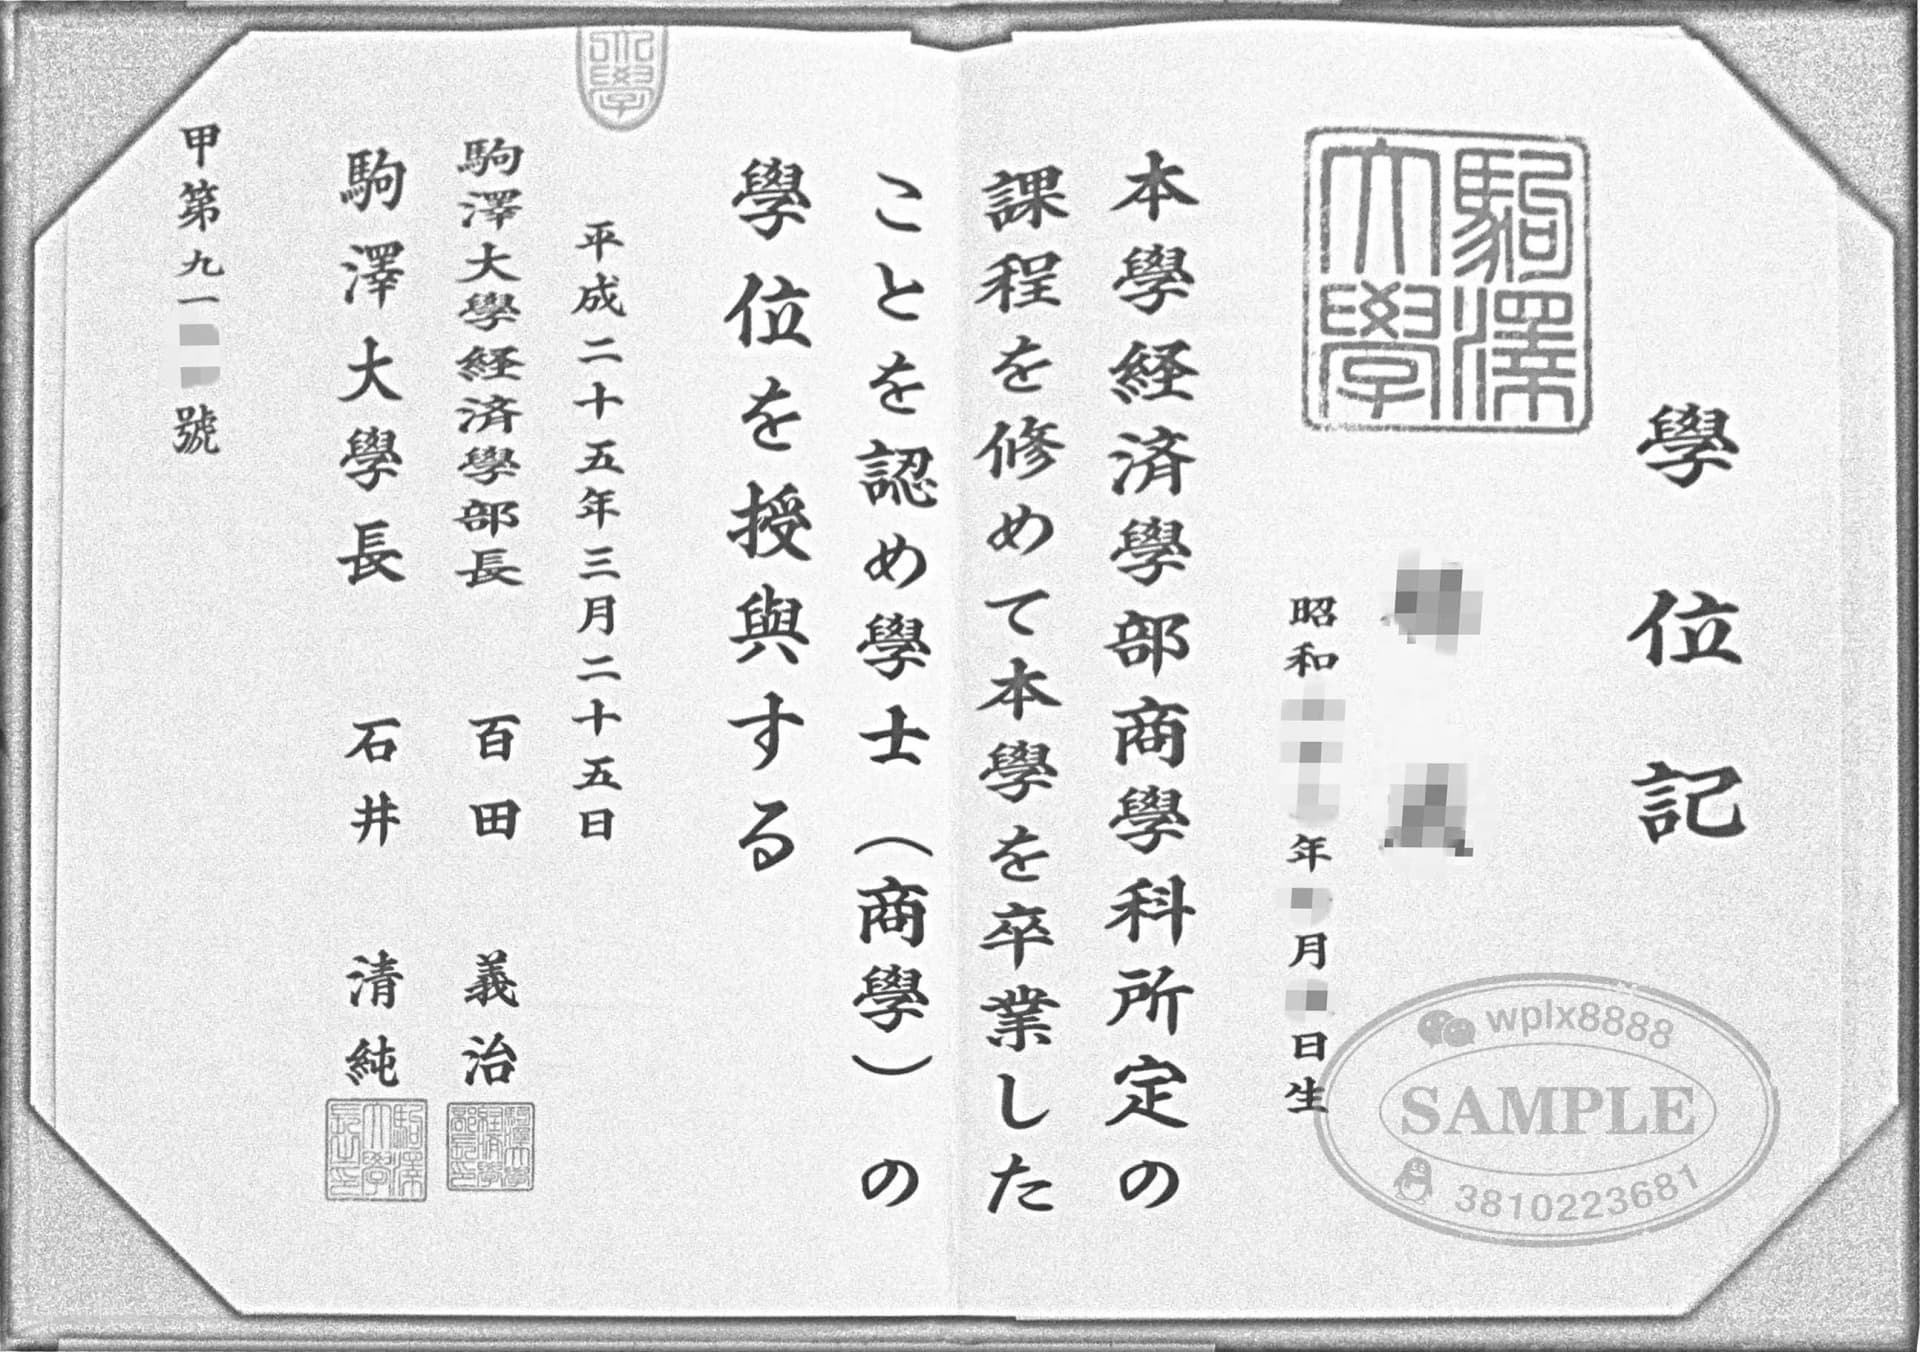 學位記
駒澤大學
昭和 年 月 日生
本學経済學部商學科所定の
課程を修めて本學を卒業した
ことを認め學士（商學）の
學位を授與する
大學
平成二十五年三月二十五日
駒澤大學経済學部長 百田 義治
駒澤大學長 石井 清純
甲第九一 號
wplx8888
SAMPLE
3810223681